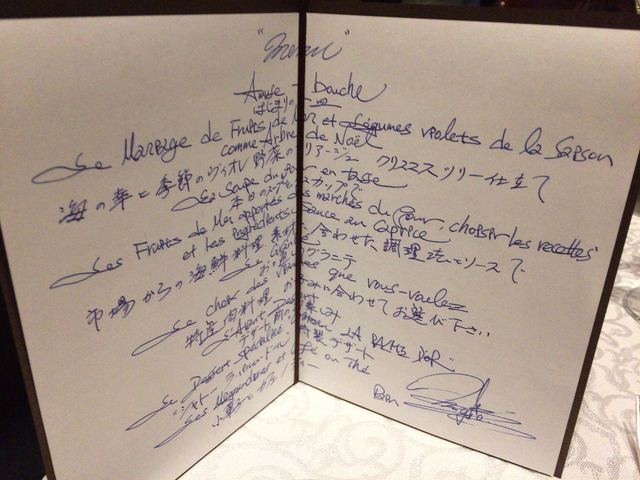 Amuse-bouche
はじまりの一皿
Le Mariage de Fruits de Mer et Légumes violets de la Saison
comme Arbre de Noël
海の幸と季節のヴィオレ野菜のマリアージュ クリスマスツリー仕立て
La Soupe du jour en tasse
本日のスープをカップで
Les Fruits de Mer apportés des marchés du jour, choisir les recettes
et les ingrédients Sauce au Caprice
市場からの海鮮料理 素材に合わせた調理法とソースで
Le Granité
お口直しのグラニテ
Le choix des Viandes que vous-voulez
特選肉料理 お好みに合わせてお選び下さい
L'Avant Dessert
デザート前の
Le Dessert spécialité LA ROCHE D'OR
特製デザート
Les Mignardises et Café ou Thé
小菓子とカフェ